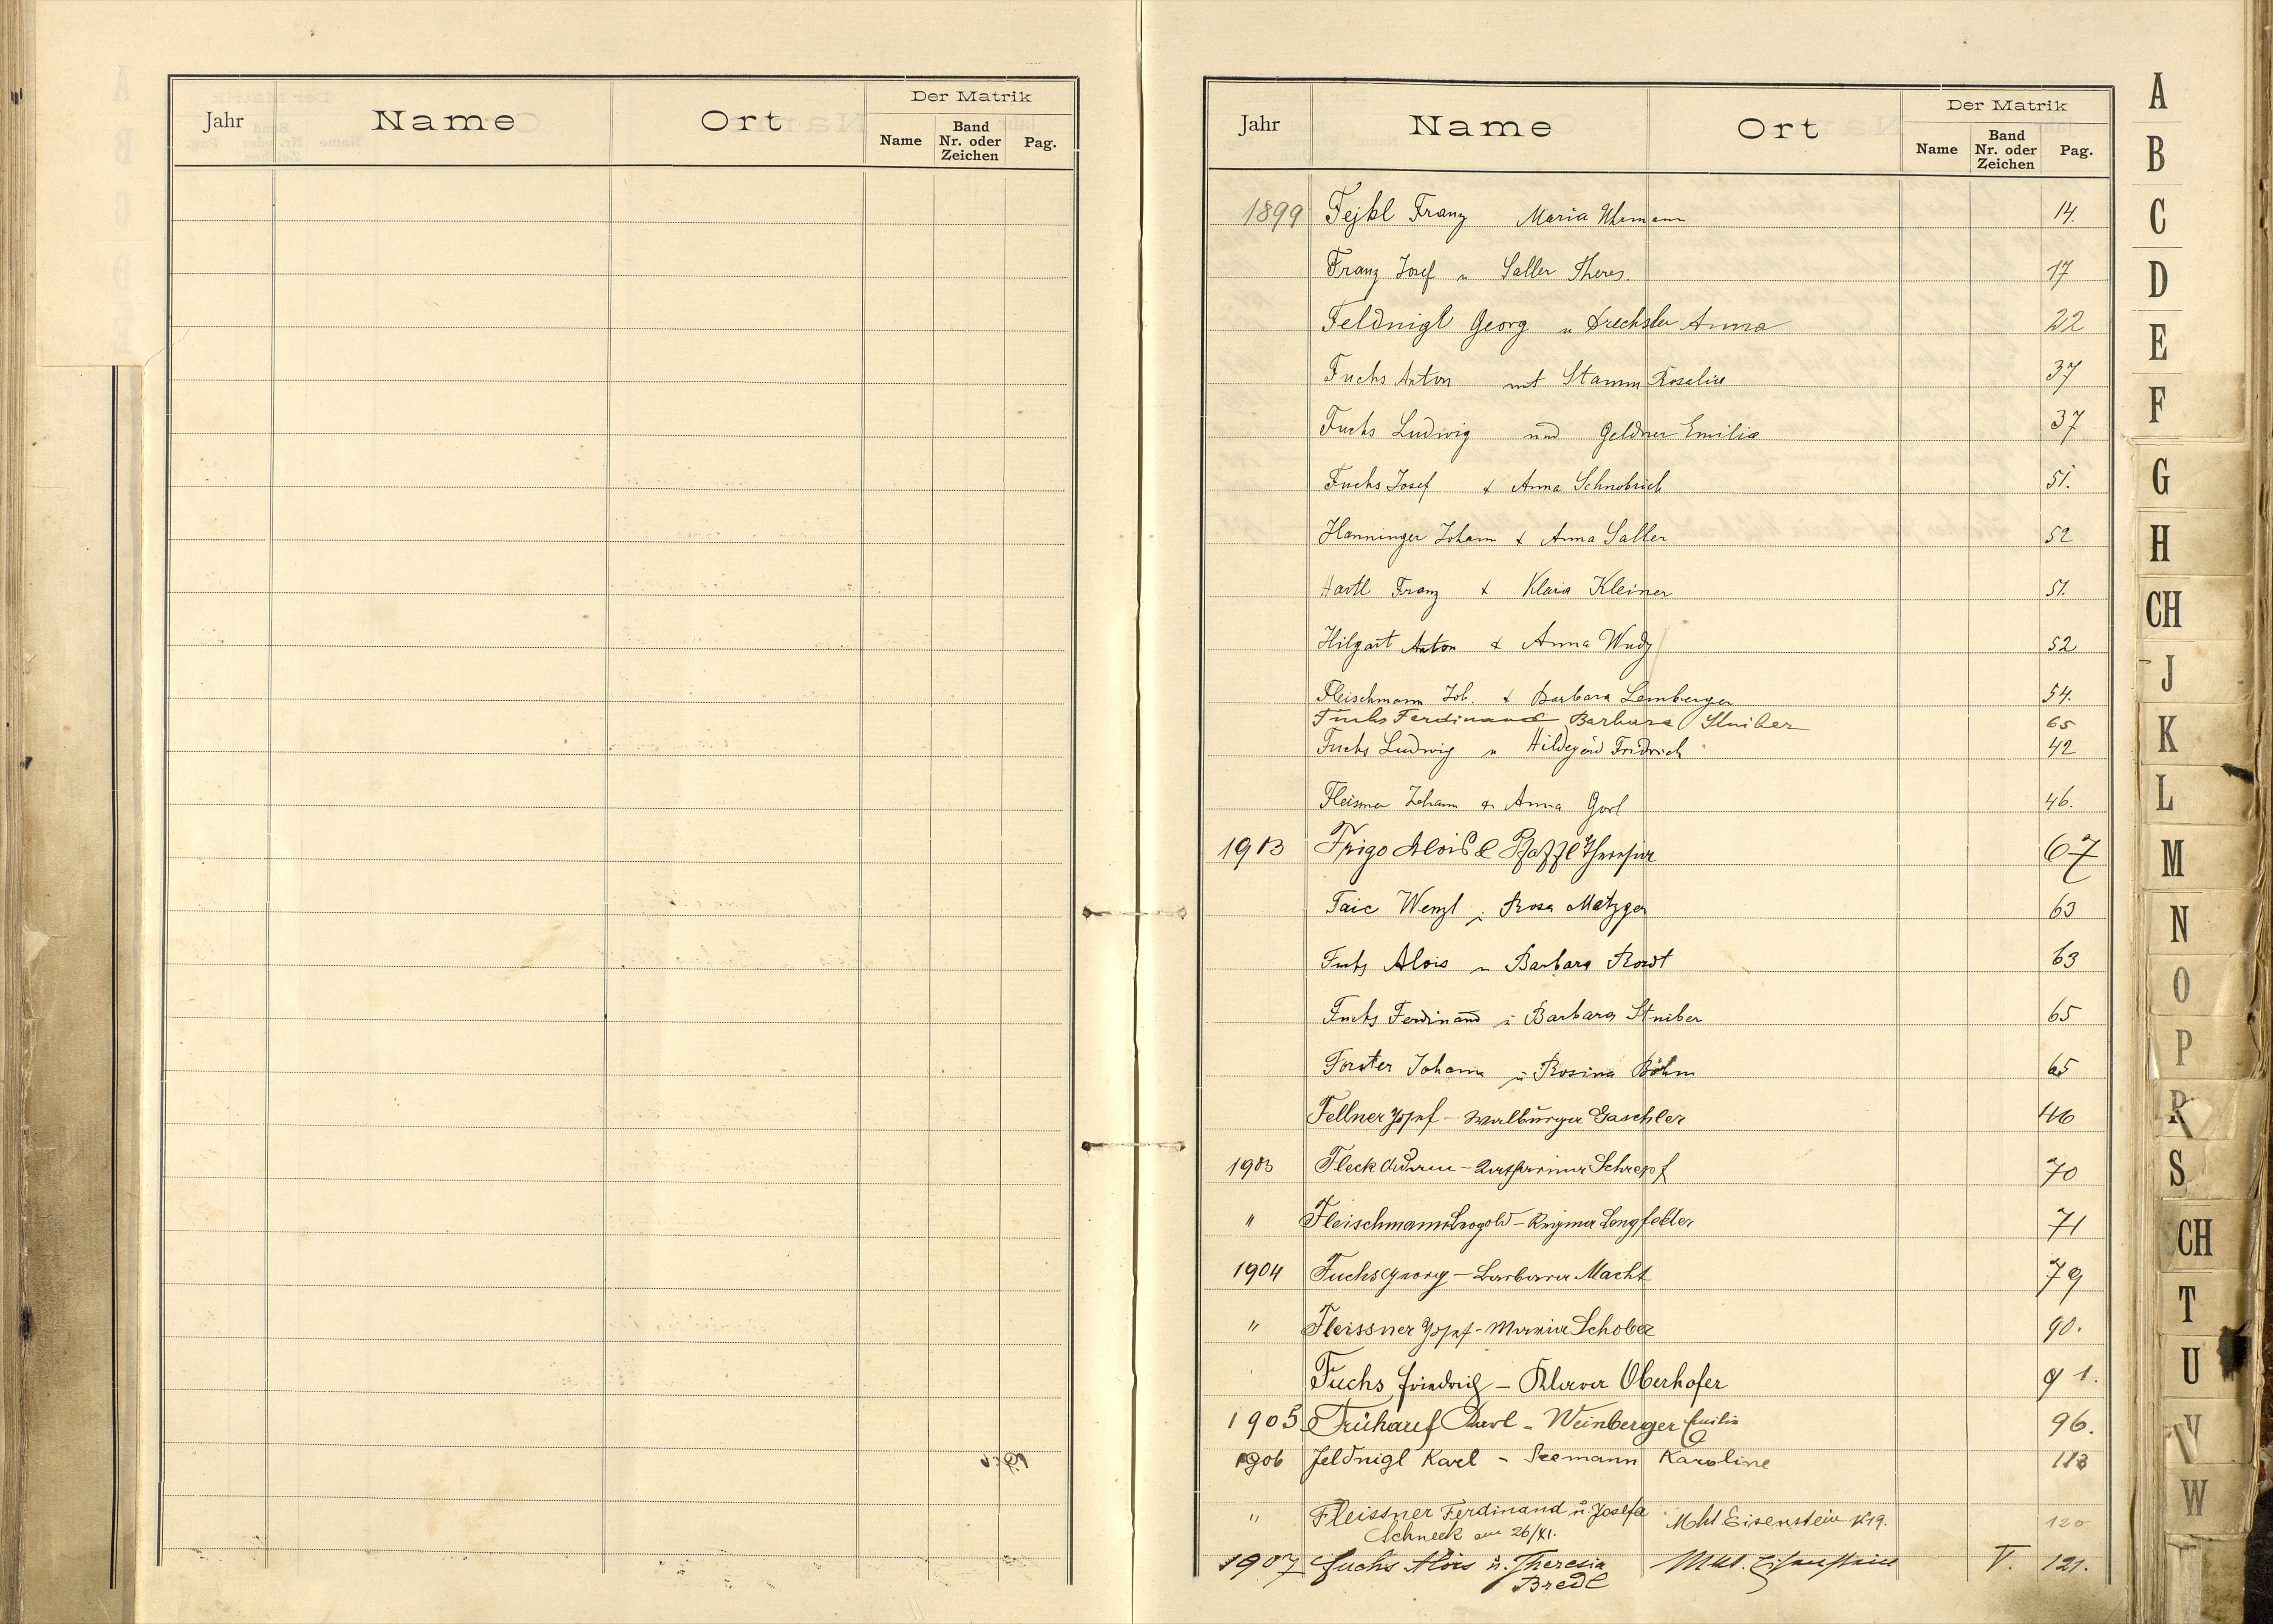 Jahr Name Ort Der Matrik
Name Band Nr. oder Zeichen Pag.
Jahr Name Ort Der Matrik
Name Band Nr. oder Zeichen Pag.
1899 Fejkl Franz Maria Uhrmann 14.
Franz Josef u Saller Theres. 17
Feldnigl Georg u Drechsler Anna 22
Fuchs Anton mit Stamm Rosalia 37
Fuchs Ludwig und Geldner Emilia 37
Fuchs Josef & Anna Schnobrich 51.
Hanninger Johann & Anna Saller 52
Hartl Franz & Klara Kleiner 51.
Hilgart Anton & Anna Wudy 52
Fleischmann Joh. & Barbara Lemberger 54.
Fuchs Ferdinand Barbara Stuiber 65
Fuchs Ludwig u Hildegard Fridrich 42
Fleisner Johann & Anna Gorl 46.
1913 Frigo Alois & Pfaffl Theresia 67
Taic Wenzl u Rosa Metzger 63
Fuchs Alois u Barbara 63
Fuchs Ferdinand u Barbara Stuiber 65
Forster Johann u Rosina Böhm 65
Fellner Josef - Walburga Gaschler 46
1903 Fleck Adam - Katharina Schrepf 70
" Fleischmann Leopold - Regina Longfelder 71
1904 Fuchs Georg - Barbara Macht 79
" Fleissner Josef - Maria Schober 90.
Fuchs Friedrich - Klara Oberhofer 91.
1905 Frühauf Karl - Weinberger Emilia 96.
1906 Feldnigl Karl - Seemann Karoline 113
" Fleissner Ferdinand u. Josefa Mkt Eisenstein N19. 120
Schneck am 26/XI.
1907 Fuchs Alois u. Theresia Mkt. Eisenstein V. 121.
Bredl
A
B
C
D
E
F
G
H
CH
J
K
L
M
N
O
P
R
S
CH
T
U
V
W